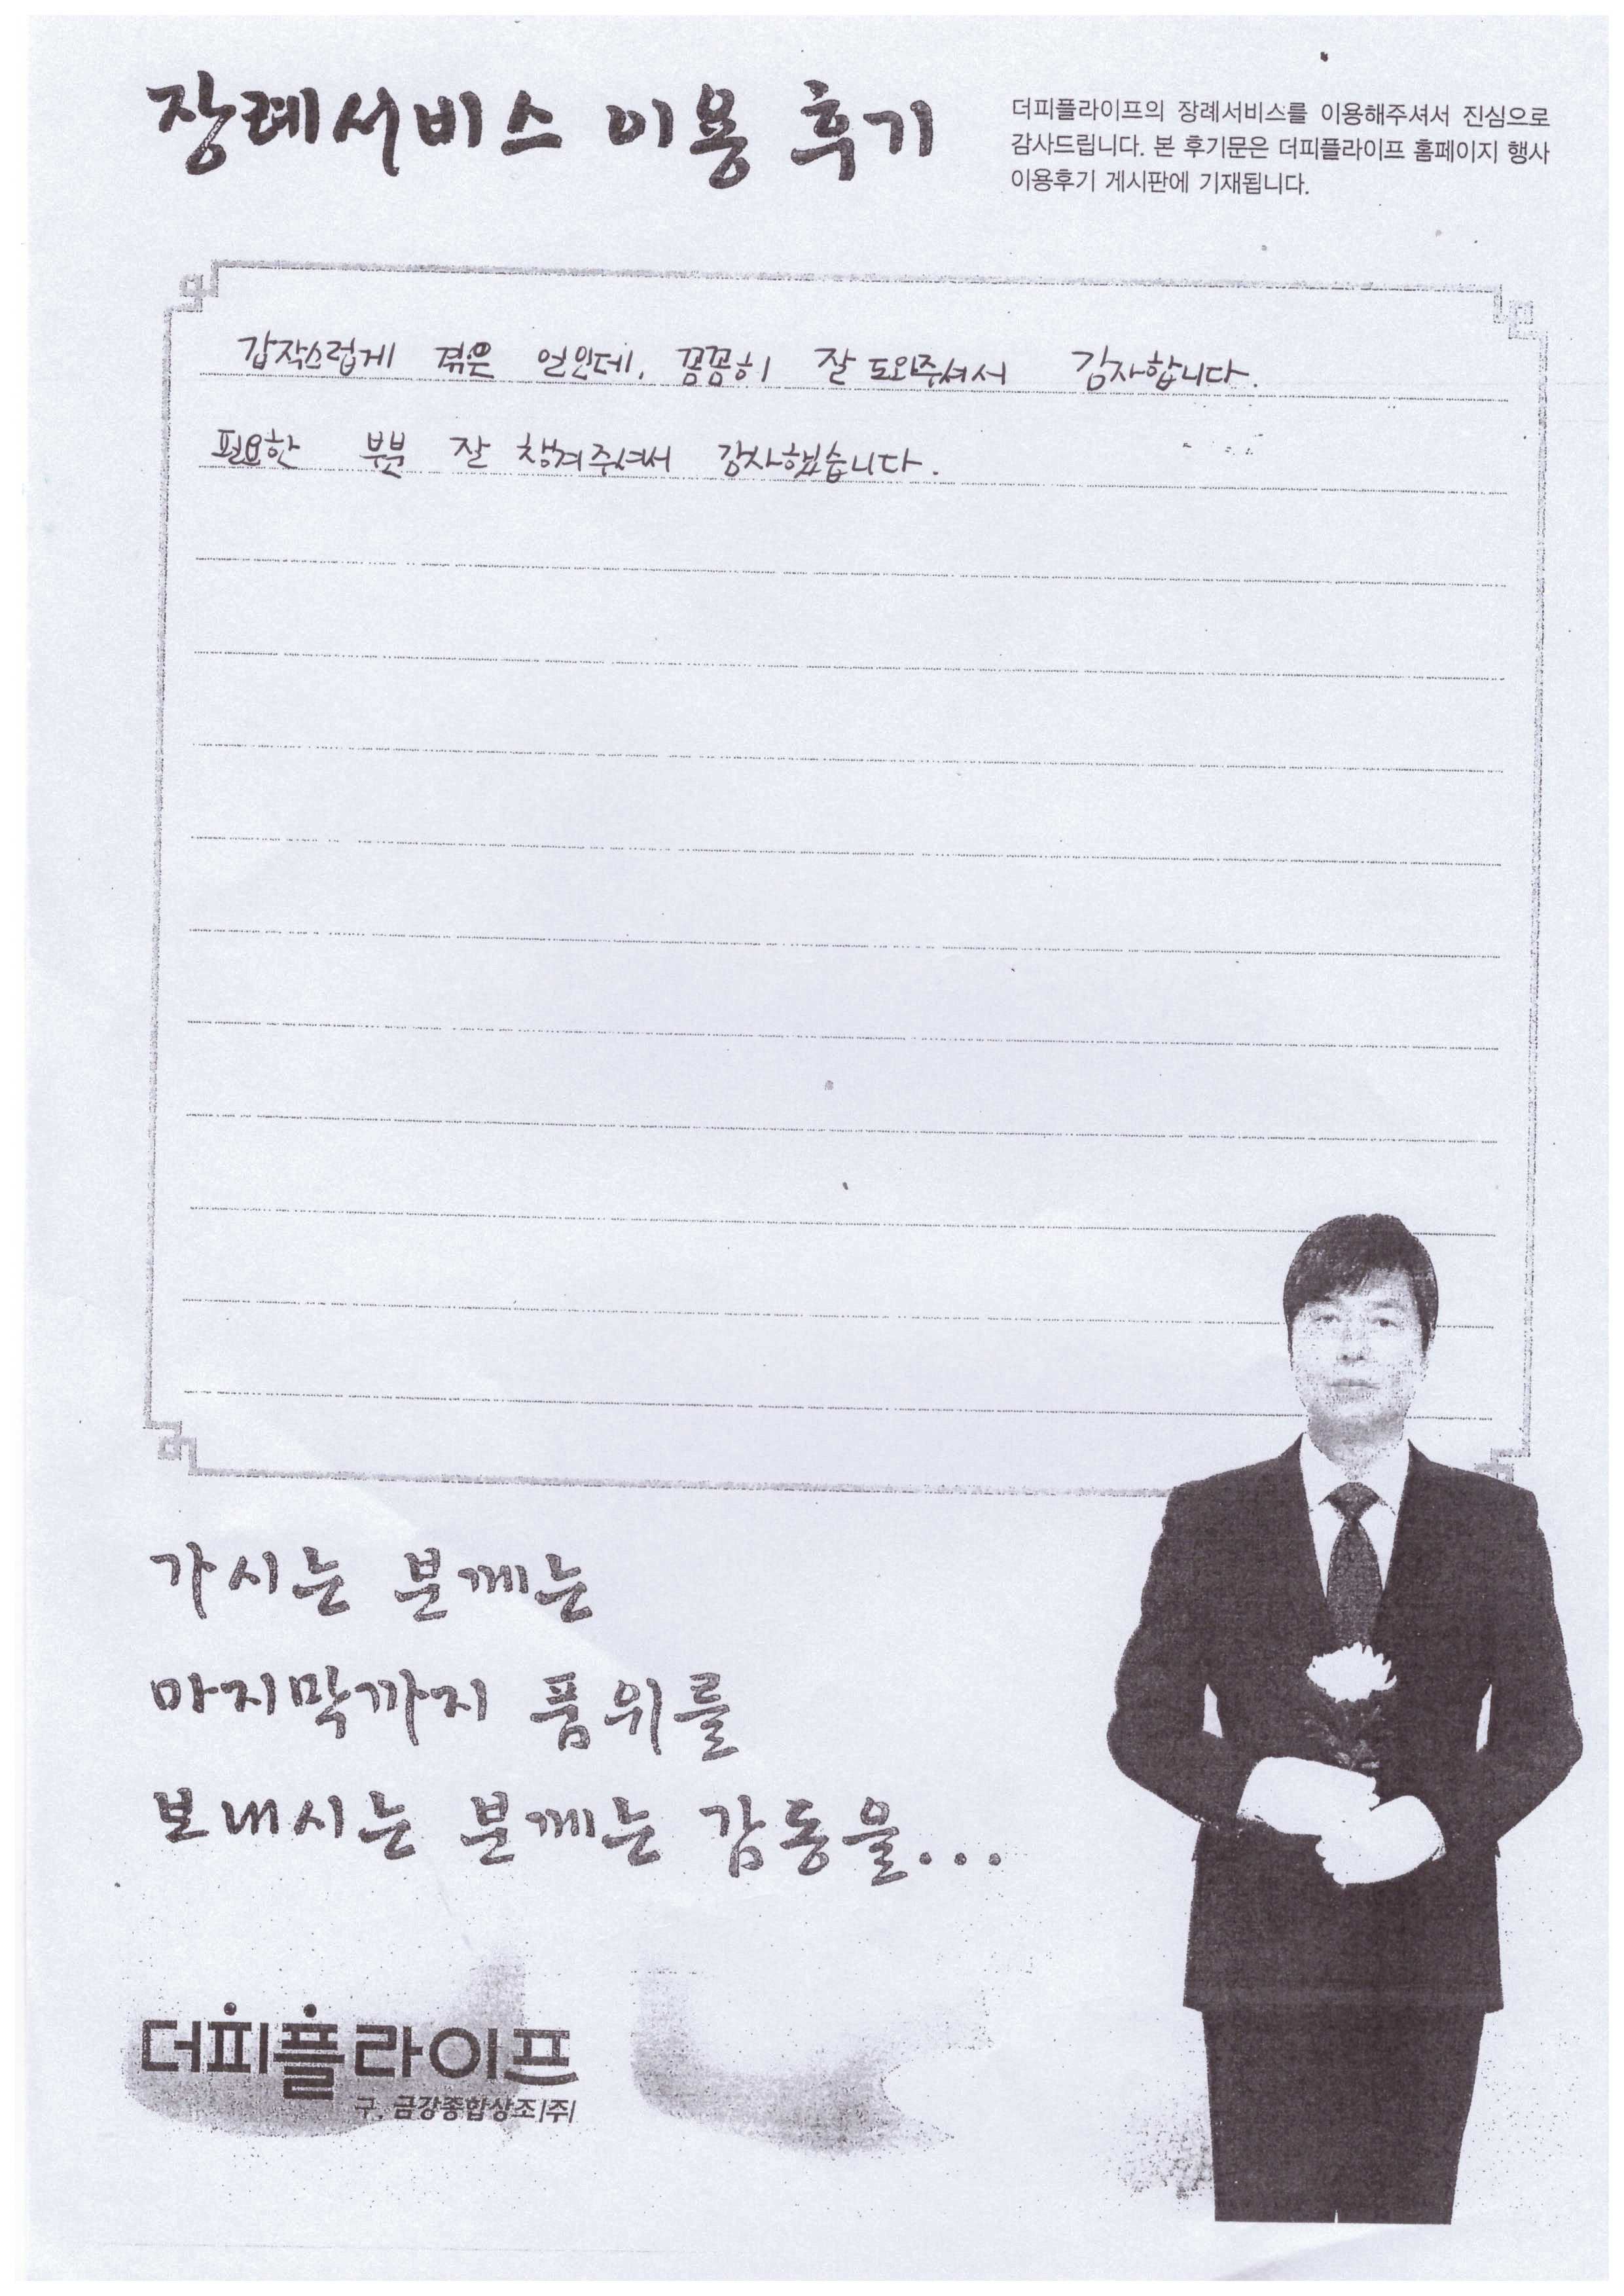 장례서비스 이용 후기
더피플라이프의 장례서비스를 이용해주셔서 진심으로
감사드립니다. 본 후기문은 더피플라이프 홈페이지 행사
이용후기 게시판에 기재됩니다.
갑작스럽게 겪은 일인데, 꼼꼼히 잘 도와주셔서 감사합니다.
필요한 부분 잘 챙겨주셔서 감사했습니다.
가시는 분께는
마지막까지 품위를
보내시는 분께는 감동을...
더피플라이프
구. 금강종합상조|주|